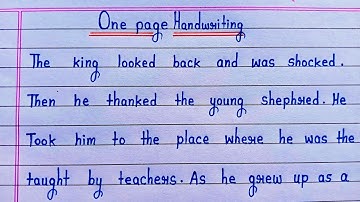 One page Handwriting
The king looked back and was shocked.
Then he thanked the young shephred. He
Took him to the place where he was the
taught by teachers. As he grew up as a